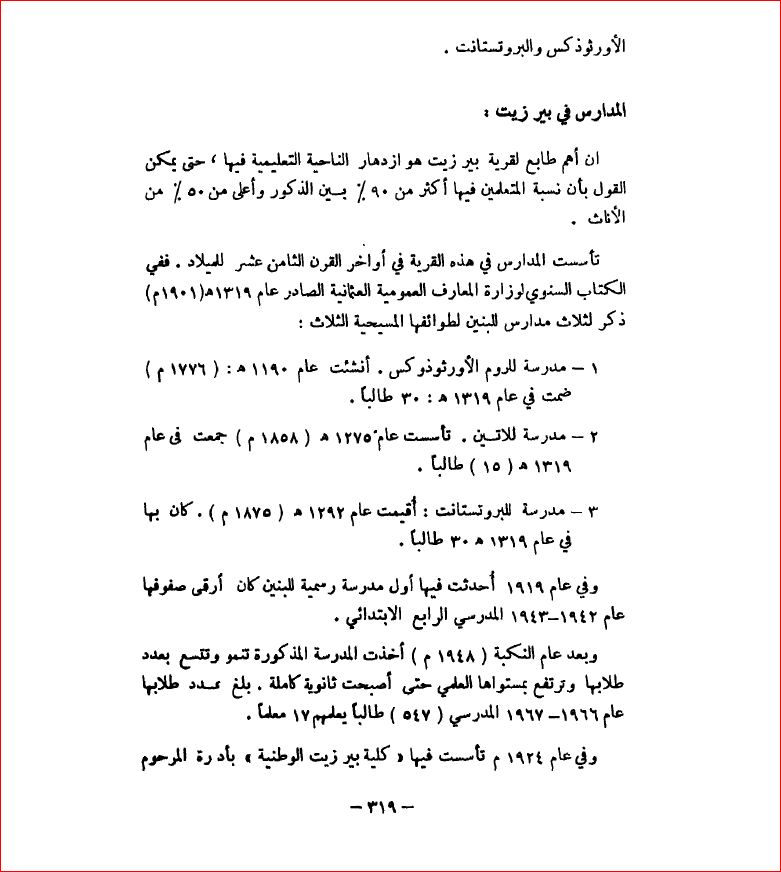 الأورثوذكس والبروتستانت .
المدارس في بير زيت :
ان أهم طابع لقرية بير زيت هو ازدهار الناحية التعليمية فيها ، حتى يمكن
القول بأن نسبة المتعلمين فيها أكثر من ٩٠ ٪ بين الذكور وأعلى من ٥٠ ٪ من
الأناث .
تأسست المدارس في هذه القرية في أواخر القرن الثامن عشر للميلاد . ففي
الكتاب السنوي لوزارة المعارف العمومية العثمانية الصادر عام ١٣١٩هـ(١٩٠١م)
ذكر لثلاث مدارس للبنين لطوائفها المسيحية الثلاث :
١ – مدرسة للروم الأورثوذوكس . أنشئت عام ١١٩٠ هـ : ( ١٧٧٦ م )
ضمت في عام ١٣١٩ هـ : ٣٠ طالباً .
٢ – مدرسة للاتين . تأسست عام ١٢٧٥ هـ ( ١٨٥٨ م ) جمعت في عام
١٣١٩ هـ ( ١٥ ) طالباً .
٣ – مدرسة للبروتستانت : أُقيمت عام ١٢٩٢ هـ ( ١٨٧٥ م ) . كان بها
في عام ١٣١٩ هـ ٣٠ طالباً .
وفي عام ١٩١٩ أُحدثت فيها أول مدرسة رسمية للبنين كان أرقى صفوفها
عام ١٩٤٢–١٩٤٣ المدرسي الرابع الابتدائي .
وبعد عام النكبة ( ١٩٤٨ م ) أخذت المدرسة المذكورة تنمو وتتسع بعدد
طلابها وترتفع بمستواها العلمي حتى أصبحت ثانوية كاملة . بلغ عدد طلابها
عام ١٩٦٦–١٩٦٧ المدرسي ( ٥٤٧ ) طالباً يعلمهم ١٧ معلماً .
وفي عام ١٩٢٤ م تأسست فيها « كلية بير زيت الوطنية » بأدرة المرحوم
– ٣١٩ –